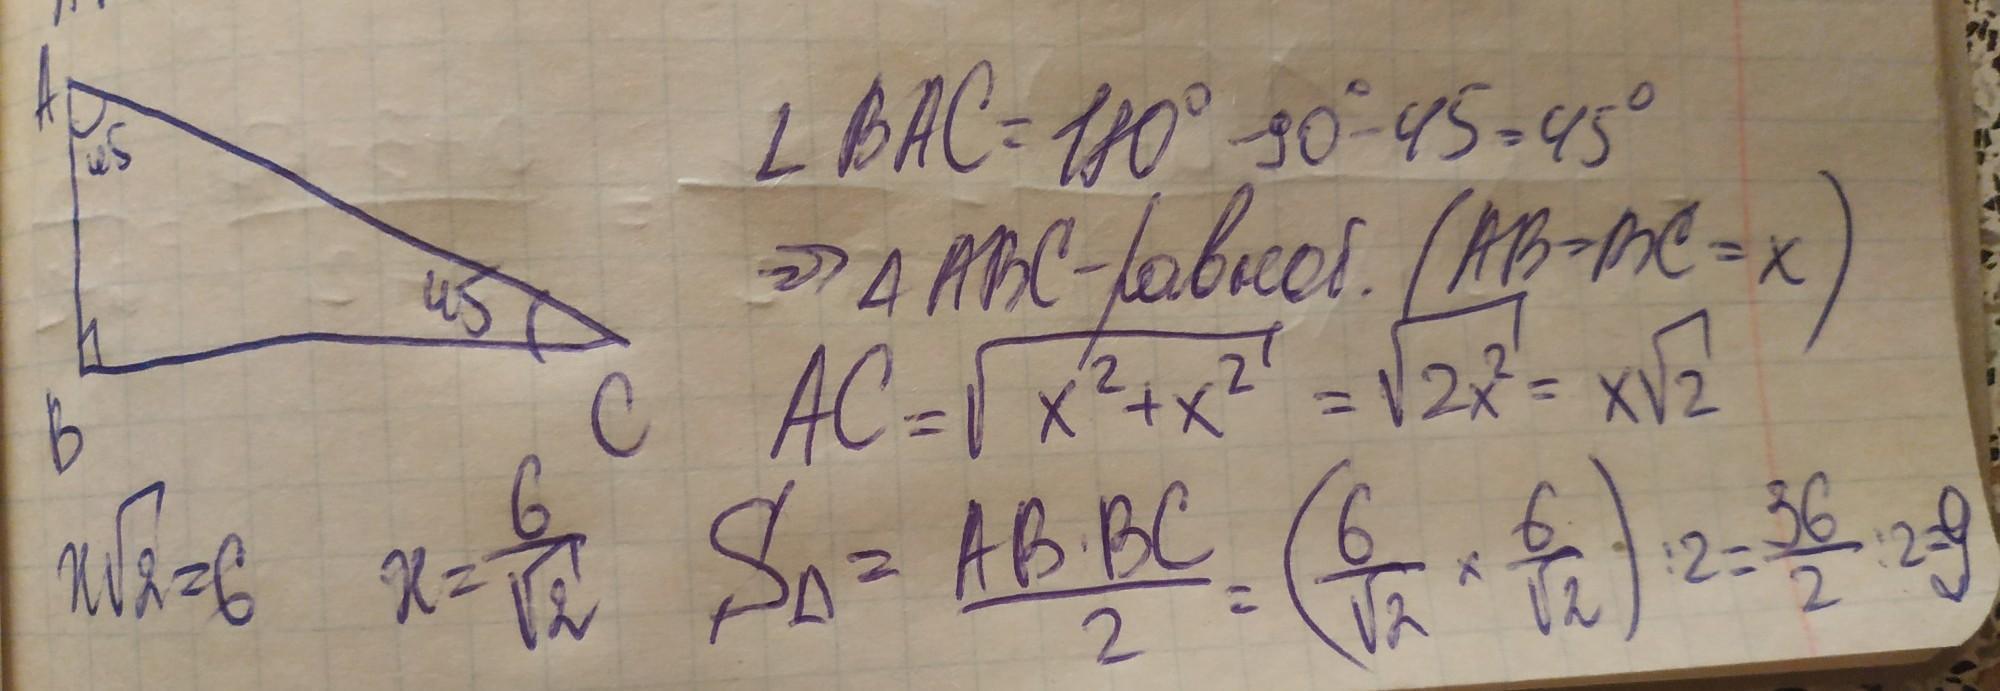 A
45
45
B
C
∠ BAC = 180° - 90° - 45 = 45°
⇒ Δ ABC - равноб. (AB = BC = x)
AC = √(x² + x²) = √(2x²) = x√2
x√2 = 6
x = 6/√2
S△ = AB · BC / 2 = (6/√2 × 6/√2) : 2 = 36/2 : 2 = 9